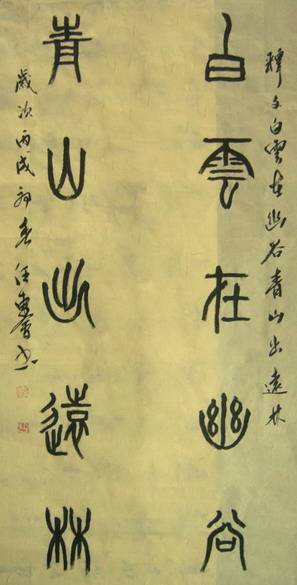 釋文白雲在幽谷青山出遠林
白雲在幽谷
青山出遠林
歲次丙戌初春汪